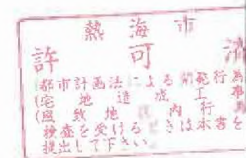 熱海市
許可済
(都市計画法による開発行為
(宅地造成工事
(風致地区内行為
検査を受けるときは本書を
提出して下さい。